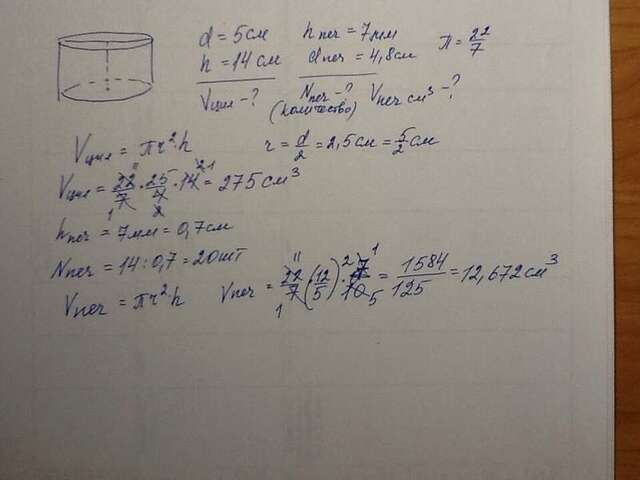 d = 5см hпеч = 7мм π = 22/7
h = 14см dпеч = 4,8см
Vцил - ? Nпеч - ? Vпеч см³ - ?
(количество)
Vцил = πr²·h r = d/2 = 2,5см = 5/2 см
Vцил = 22/7 · 25/4 · 14 = 275см³
11 2 1
1 2
hпеч = 7мм = 0,7см
Nпеч = 14 : 0,7 = 20шт
Vпеч = πr²·h Vпеч = 22/7 · (12/5)² · 7/10 = 1584/125 = 12,672см³
11 1
1 5